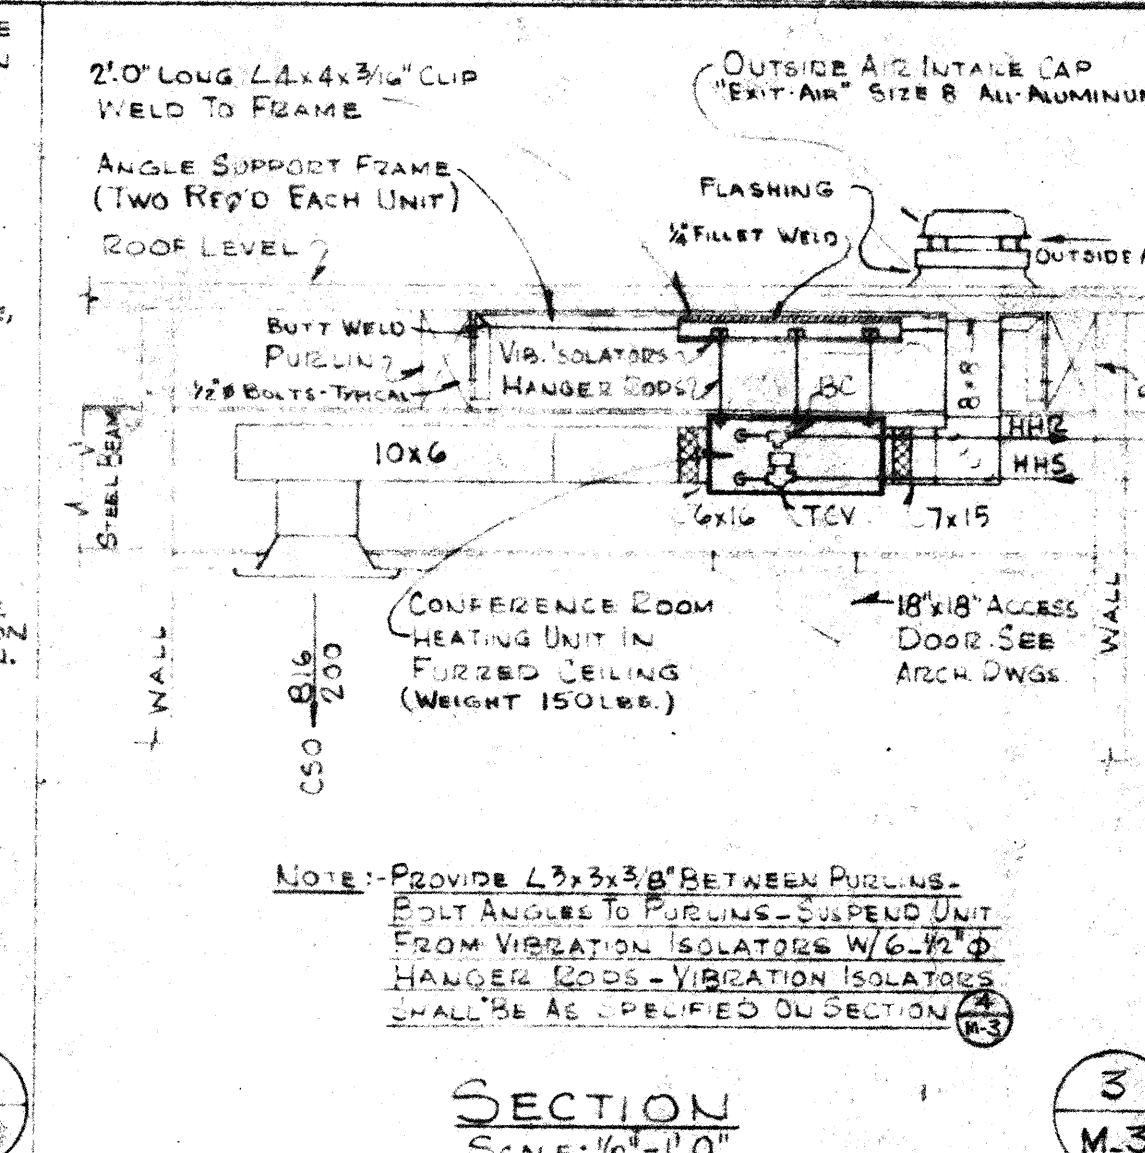 2'.0" LONG L4x4x3/16" CLIP
WELD TO FRAME
OUTSIDE AIR INTAKE CAP
"EXIT-AIR" SIZE 8 ALL-ALUMINUM
ANGLE SUPPORT FRAME
(TWO REQ'D EACH UNIT)
ROOF LEVEL
FLASHING
1/4" FILLET WELD
OUTSIDE
BUTT WELD
PURLIN
1/2"φ BOLTS-TYPICAL
VIB. ISOLATORS
HANGER RODS
BC
8x8
HHR
HHS
STEEL BEAM
10x6
6x16
TCV
7x15
WALL
816
200
CSO
CONFERENCE ROOM
HEATING UNIT IN
FURRED CEILING
(WEIGHT 150 LBS.)
18"x18" ACCESS
DOOR. SEE
ARCH. DWGS.
WALL
NOTE:- PROVIDE L3x3x3/8" BETWEEN PURLINS-
BOLT ANGLES TO PURLINS-SUSPEND UNIT
FROM VIBRATION ISOLATORS W/6-1/2"φ
HANGER RODS - VIBRATION ISOLATORS
SHALL BE AS SPECIFIED ON SECTION 4
M-3
SECTION
SCALE: 1/2"=1'.0"
3
M-3